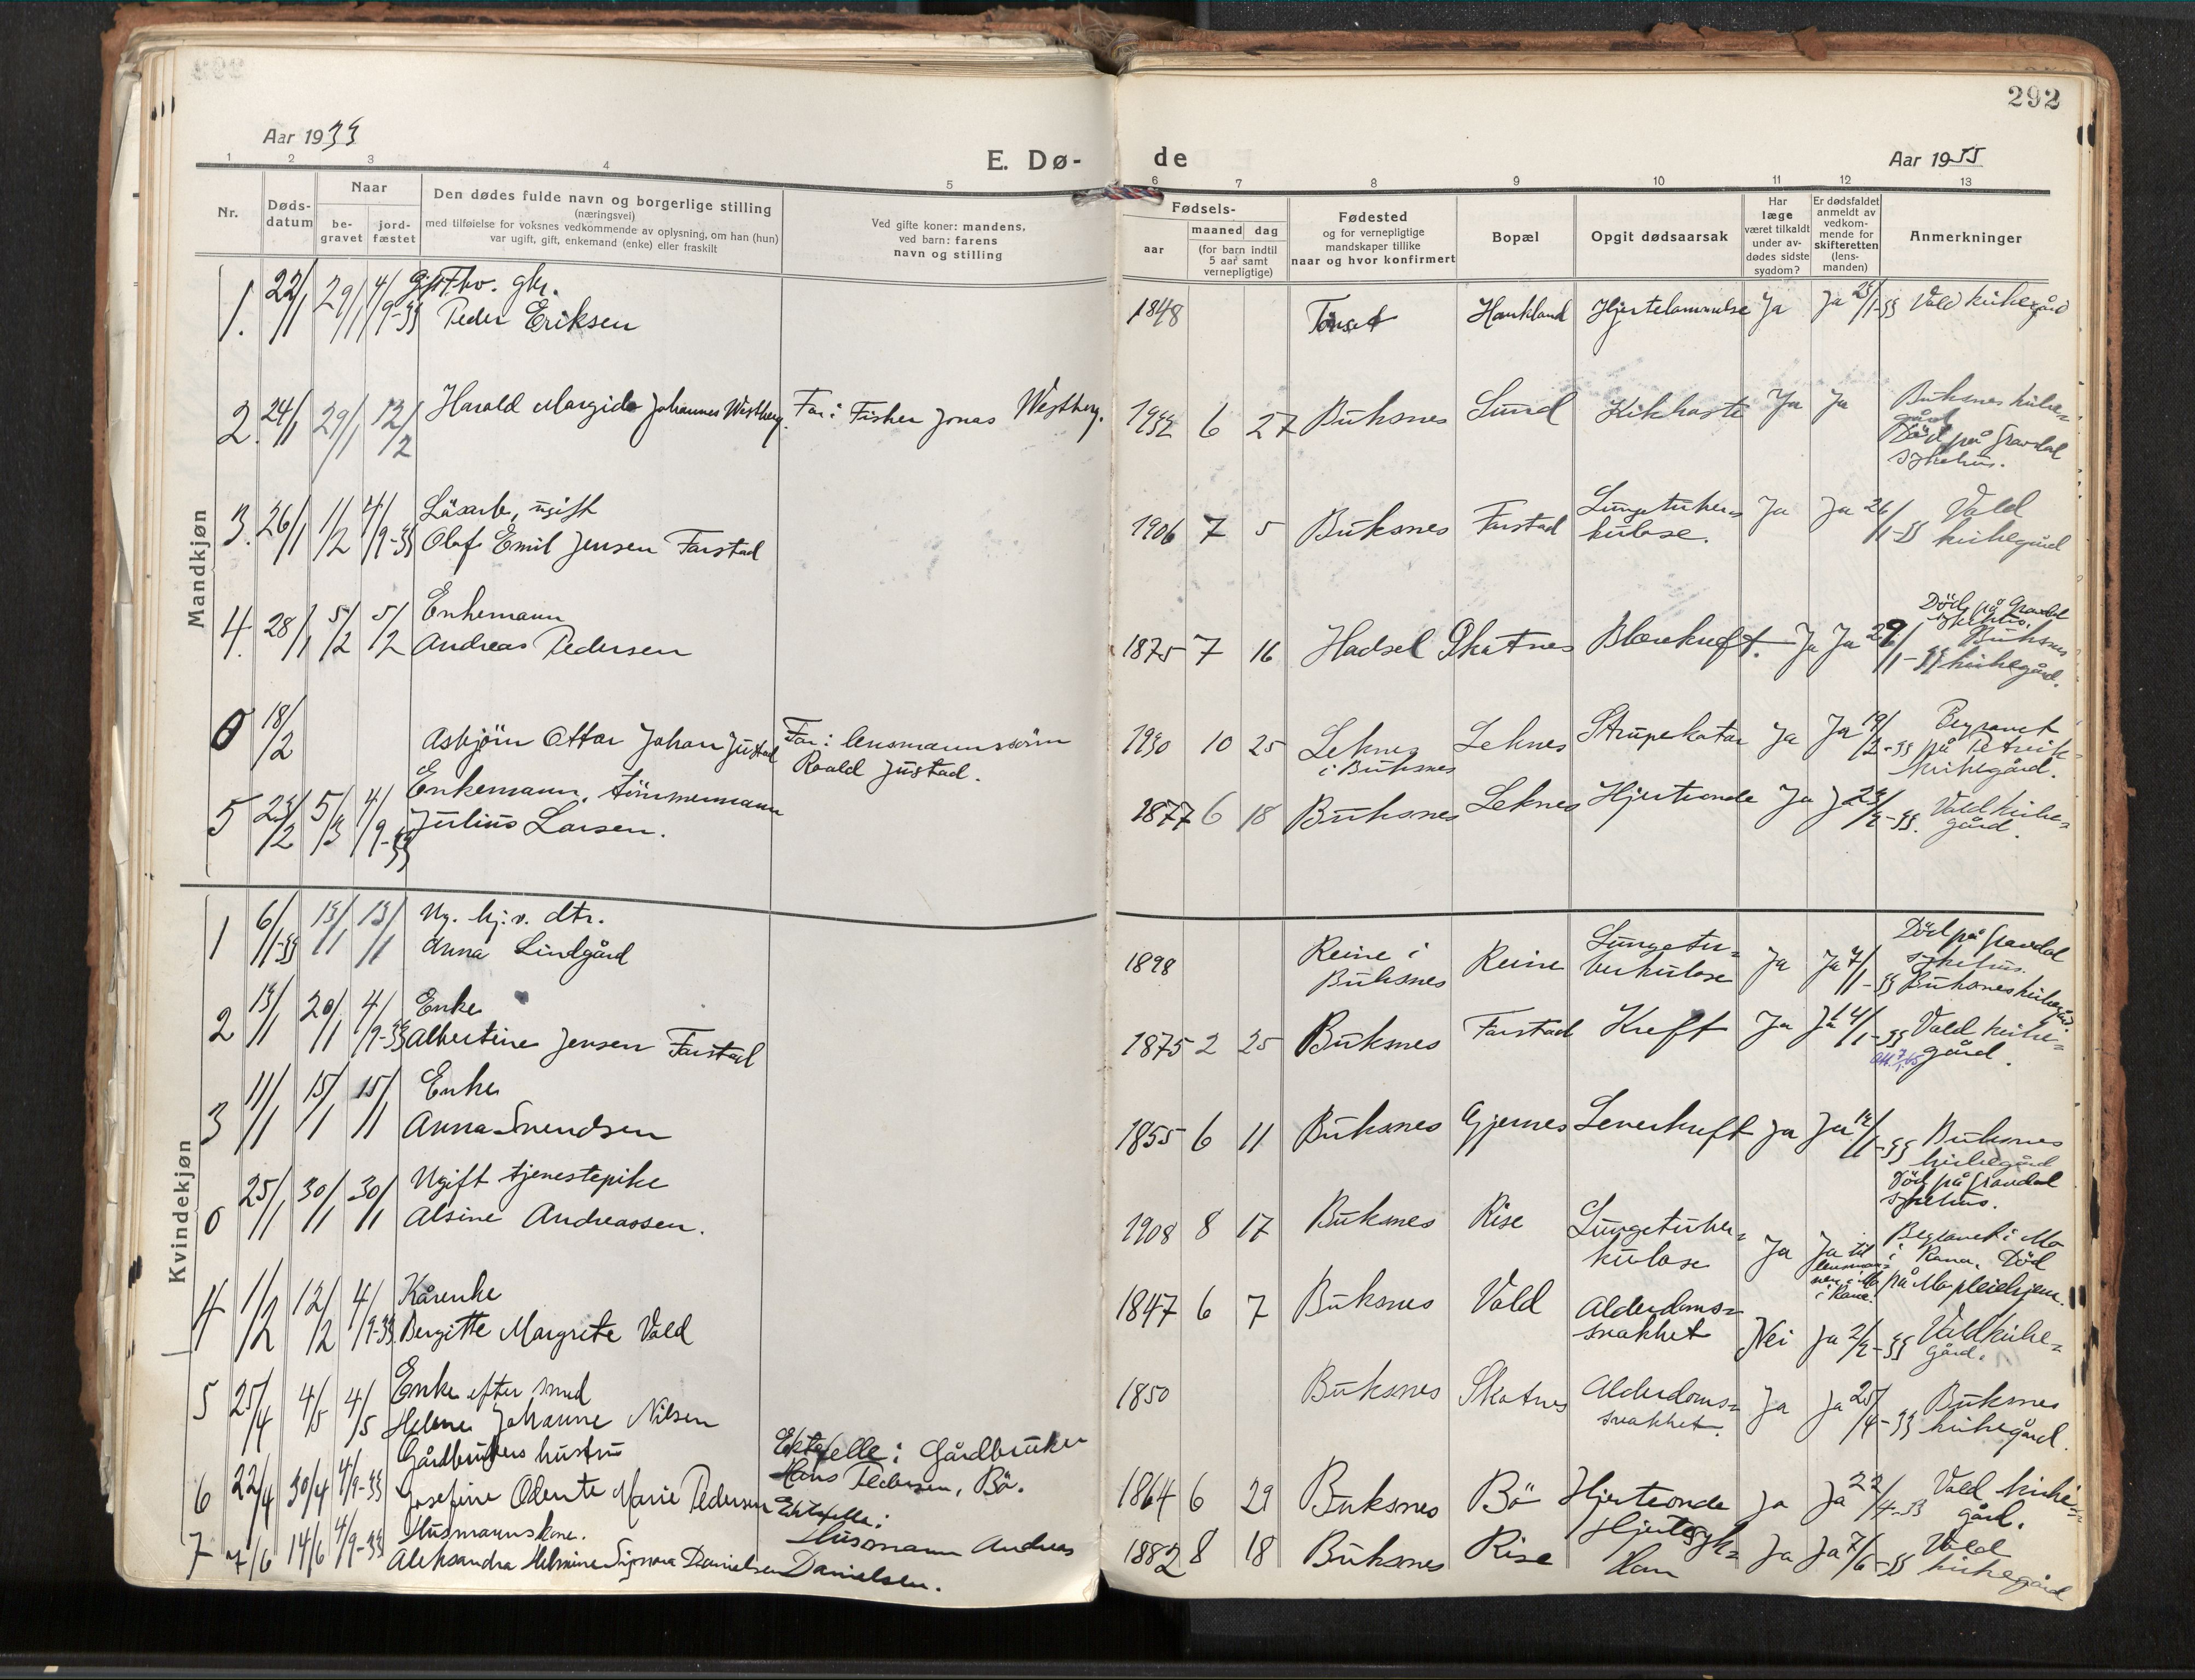 292
Aar 1933
E. Dø-
de
Aar 1933
1 2 3 4 5 6 7 8 9 10 11 12 13
Nr.
Døds-
datum
Naar
be-
gravet
jord-
fæstet
Den dødes fulde navn og borgerlige stilling
(næringsvei)
med tilføielse for voksnes vedkommende av oplysning, om han (hun)
var ugift, gift, enkemand (enke) eller fraskilt
Ved gifte koner: mandens,
ved barn: farens
navn og stilling
Fødsels-
aar
maaned dag
(for barn indtil
5 aar samt
vernepligtige)
Fødested
og for vernepligtige
mandskaper tillike
naar og hvor konfirmert
Bopæl
Opgit dødsaarsak
Har
læge
været tilkaldt
under av-
dødes sidste
sygdom?
Er dødsfaldet
anmeldt av
vedkom-
mende for
skifteretten
(lens-
manden)
Anmerkninger
Mandkjøn
1. 22/1 29/1 4/9-33 Gift fhv. gbr.
Peder Eriksen
1848 Haukland Hjertelammelse Ja Ja 23/1-33 Vold kirkegård
2. 24/1 29/1 12/2 Harald Margido Johannes Westberg. Far: Fisker Jonas Westberg.
1932 6 27 Buksnes Sund Kikhoste Ja Ja Buksnes kirke=
gård
Död på Gravdal
sykehus.
3. 26/1 1/2 4/9-33 Lösarb, ugift
Olaf Emil Jensen Farstad
1906 7 5 Buksnes Farstad Lungetuber=
kulose. Ja Ja 26/1-33 Vold
kirkegård
4. 28/1 5/2 5/2 Enkemann
Andreas Pedersen
1875 7 16 Hadsel Skotnes Blærekreft. Ja Ja 29/1-33 Död på Gravdal
sykehus.
Buksnes
kirkegård.
0 18/2 Asbjörn Ottar Johan Justad Far: lensmannssönn
Roald Justad.
1930 10 25 Leknes
i Buksnes Leknes Strupekatar Ja Ja 19/2-33 Begravet
på
kirkegård.
5 23/2 5/3 4/9-33 Enkemann, tömmermann
Julius Larsen.
1877 6 18 Buksnes Leknes Hjerteonde Ja Ja 23/2-33. Vold kirke=
gård.
Kvindekjøn
1 6/1-33 13/1 13/1 Ug. hj.v. dtr.
Anna Lindgård
1898 Reine i
Buksnes Reine Lungetu=
berkulose Ja Ja 7/1-33 Död på Gravdal
sykehus.
Buksnes kirkegård.
2 13/1 20/1 4/9-33 Enke
Albertine Jensen Farstad
1875 2 25 Buksnes Farstad Kreft Ja Ja 14/1-33 Vold kirke=
gård.
3 11/1 15/1 15/1 Enke
Anna Svendsen
1855 6 11 Buksnes Gjernes Leverkreft Ja Ja 12/1-33 Buksnes
kirkegård
Död på Gravdal
sykehus.
0 25/1 30/1 30/1 Ugift tjenestepike
Alsine Andreassen.
1908 8 17 Buksnes Rise Lungetuber=
kulose Ja Ja til
lensman=
nen i Mo
i Rana. Begravet i Mo
i Rana. Död
på Mo pleiehjem.
4 1/2 12/2 4/9-33 Kårenke
Bergitte Margrete Vold
1847 6 7 Buksnes Vold Alderdoms=
svakhet Nei Ja 2/2-33 Vold kirke=
gård.
5 25/4 4/5 4/5 Enke efter smed
Helene Johanne Nilsen
1850 Buksnes Skotnes Alderdoms=
svakhet. Ja Ja 25/4-33 Buksnes
kirkegård.
6 22/4 30/4 4/9-33 Gårdbrukers hustru
Josefine Odente Marie Pedersen Ektefelle: Gårdbruker
Hans Pedersen, Bö.
1864 6 29 Buksnes Bö Hjerteonde Ja Ja 22/4-33 Vold kirke=
gård.
7 7/6 14/6 4/9-33 Husmannskone.
Aleksandra Helmine Signora Danielsen Ektefelle:
Husmann Andreas
Danielsen.
1882 8 18 Buksnes Rise Hjertesyk=
dom Ja Ja 7/6-33 Vold
kirkegård